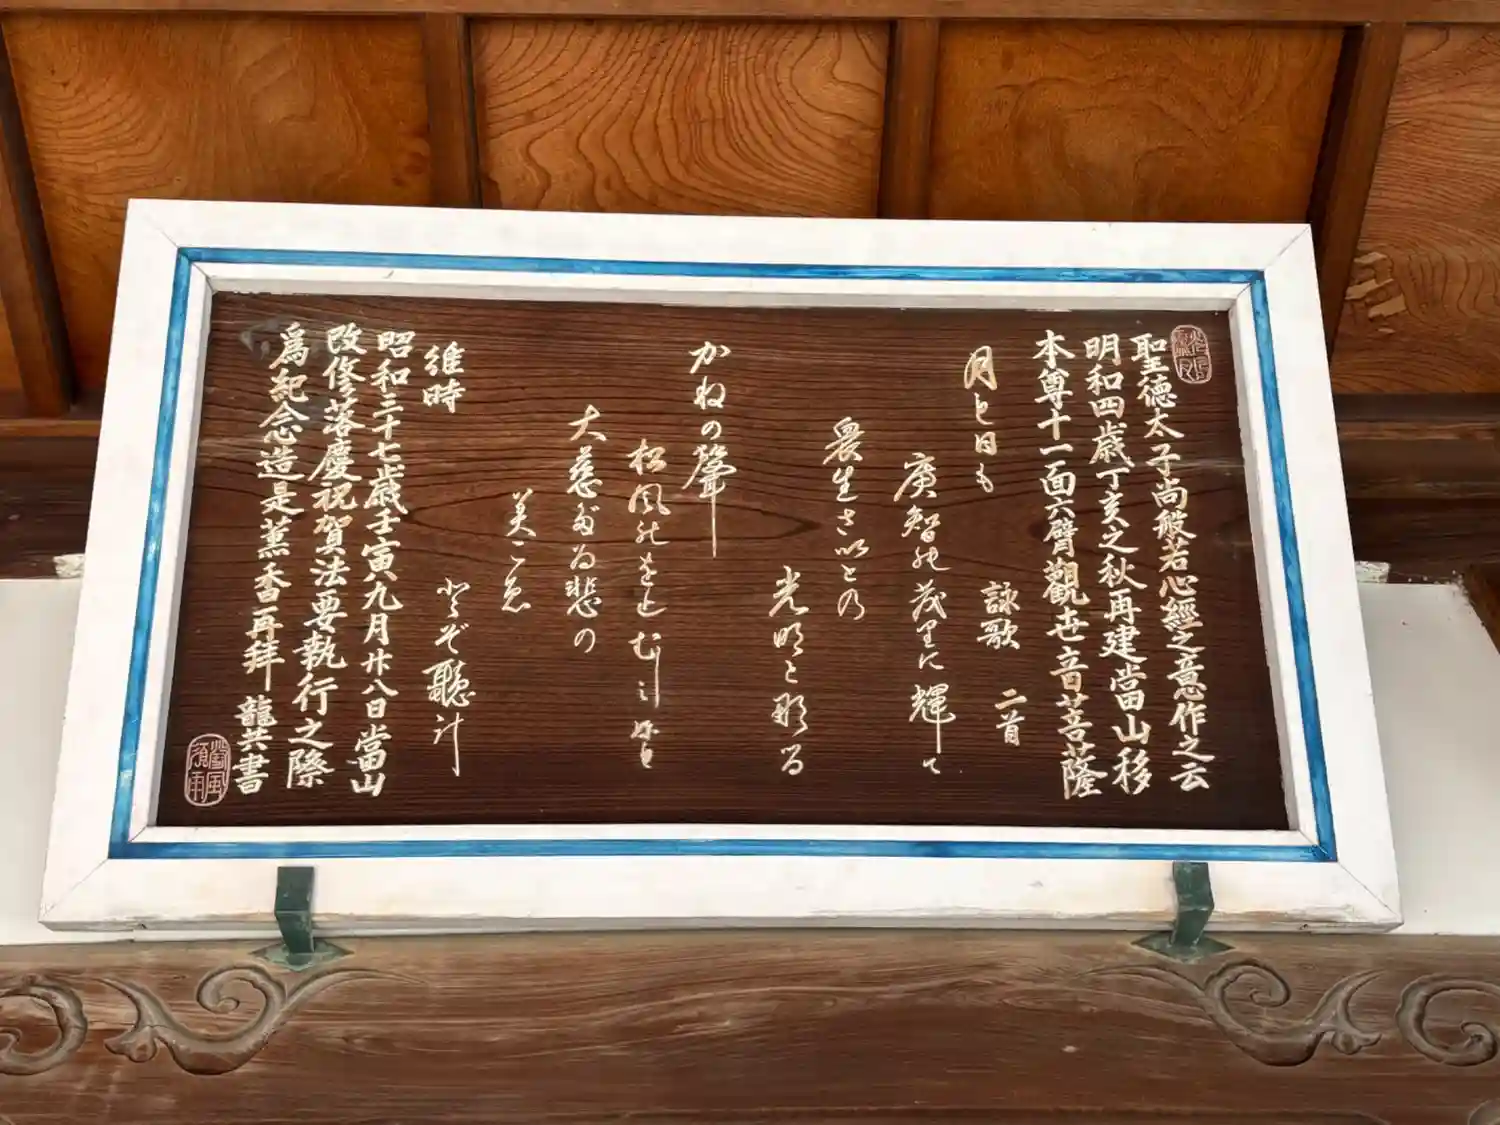 聖德太子尚般若心經之意作之云
明和四歳丁亥之秋再建當山移
本尊十一面六臂觀世音菩薩
詠歌 二首
月も日も
智能茂里に輝して
衆生さいとの
光明と那る
かねの聲
松風能をと
大慈
悲の
聽計
維時
昭和三十七歳壬寅九月廿八日當山
改修落慶祝賀法要執行之際
爲紀念造是薫香再拜 龍共書